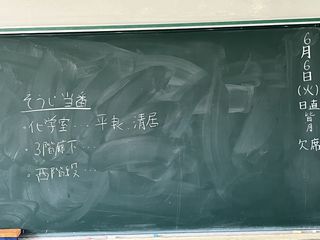 6月6日(火)
日直
欠席
そうじ当番
・化学室…
・3階廊下…
・西階段…